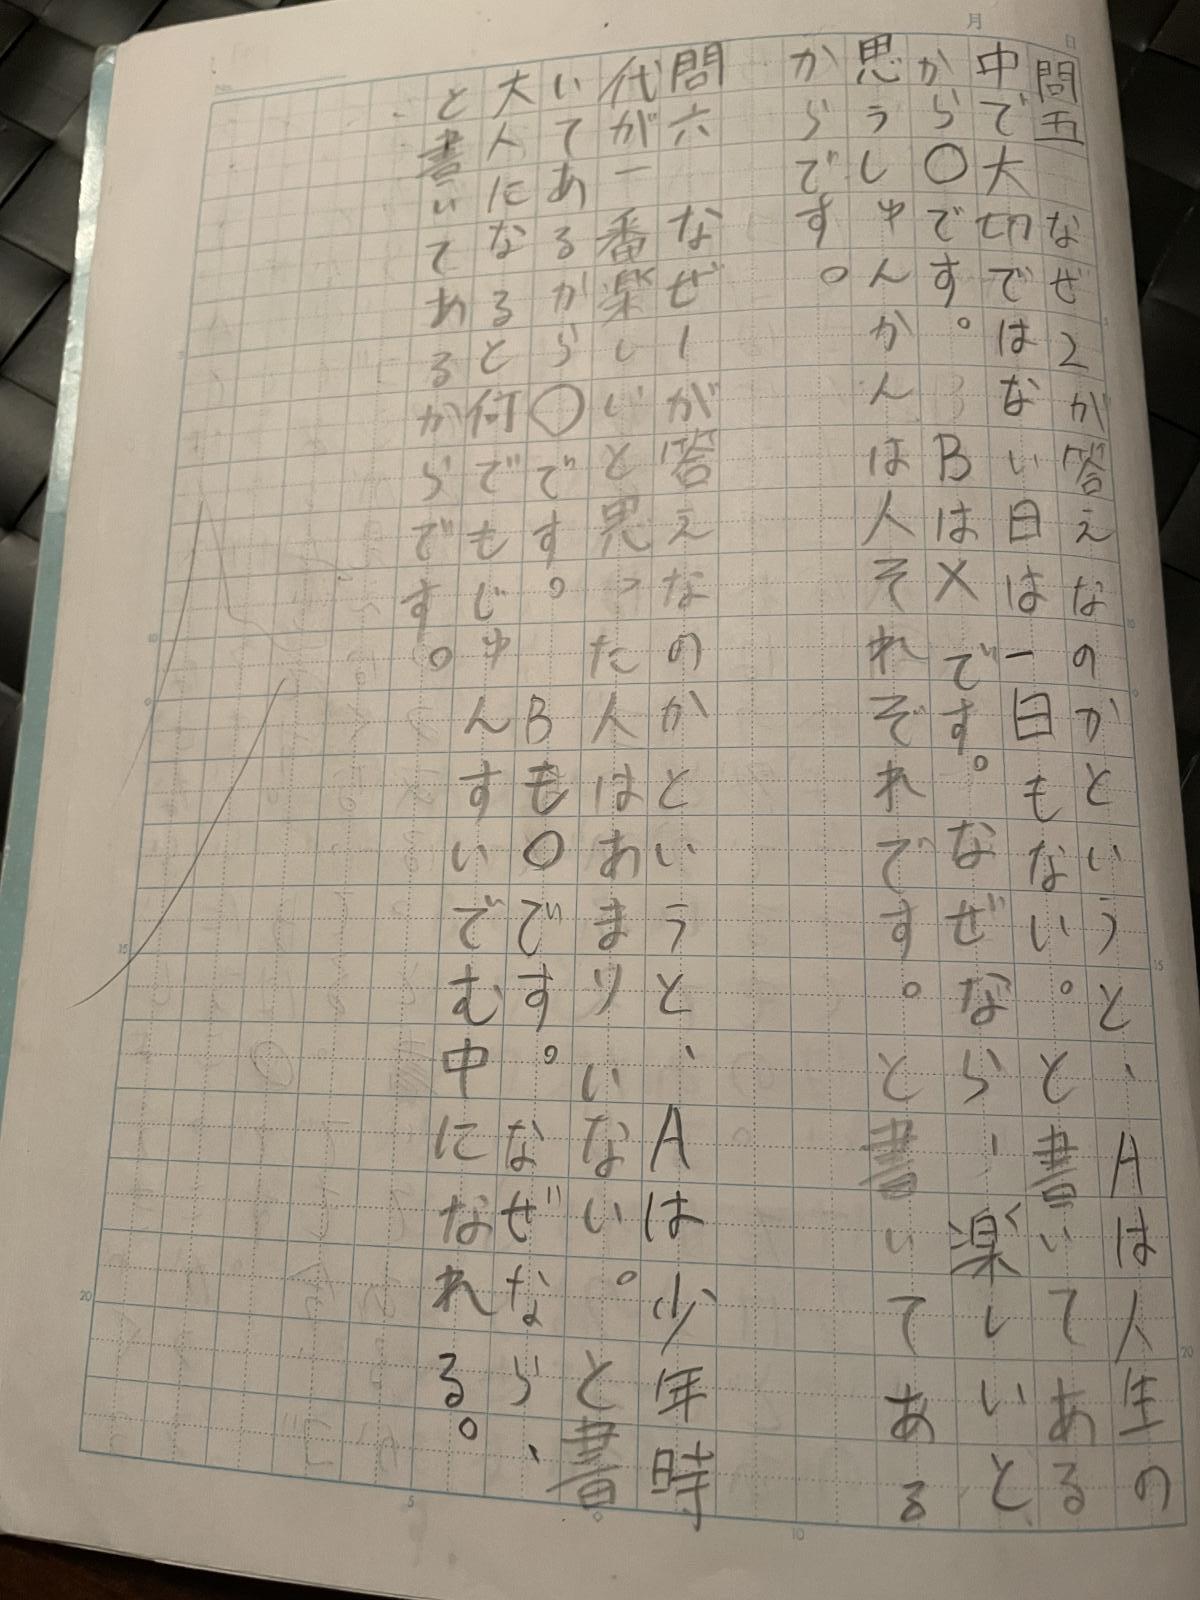 月 日
問五 なぜ2が答えなのかというと、Aは人生の
中で大切ではない日は一日もない。と書いてある
から〇です。Bは×です。なぜなら、楽しいと
思うしゅんかんは人それぞれです。と書いてある
からです。
問六 なぜ1が答えなのかというと、Aは少年時
代が一番楽しいと思った人はあまりいない。と書
いてあるから〇です。Bも〇です。なぜなら、
大人になると何でもじゅんすいでむ中になれる。
と書いてあるからです。
No.
5
10
15
20